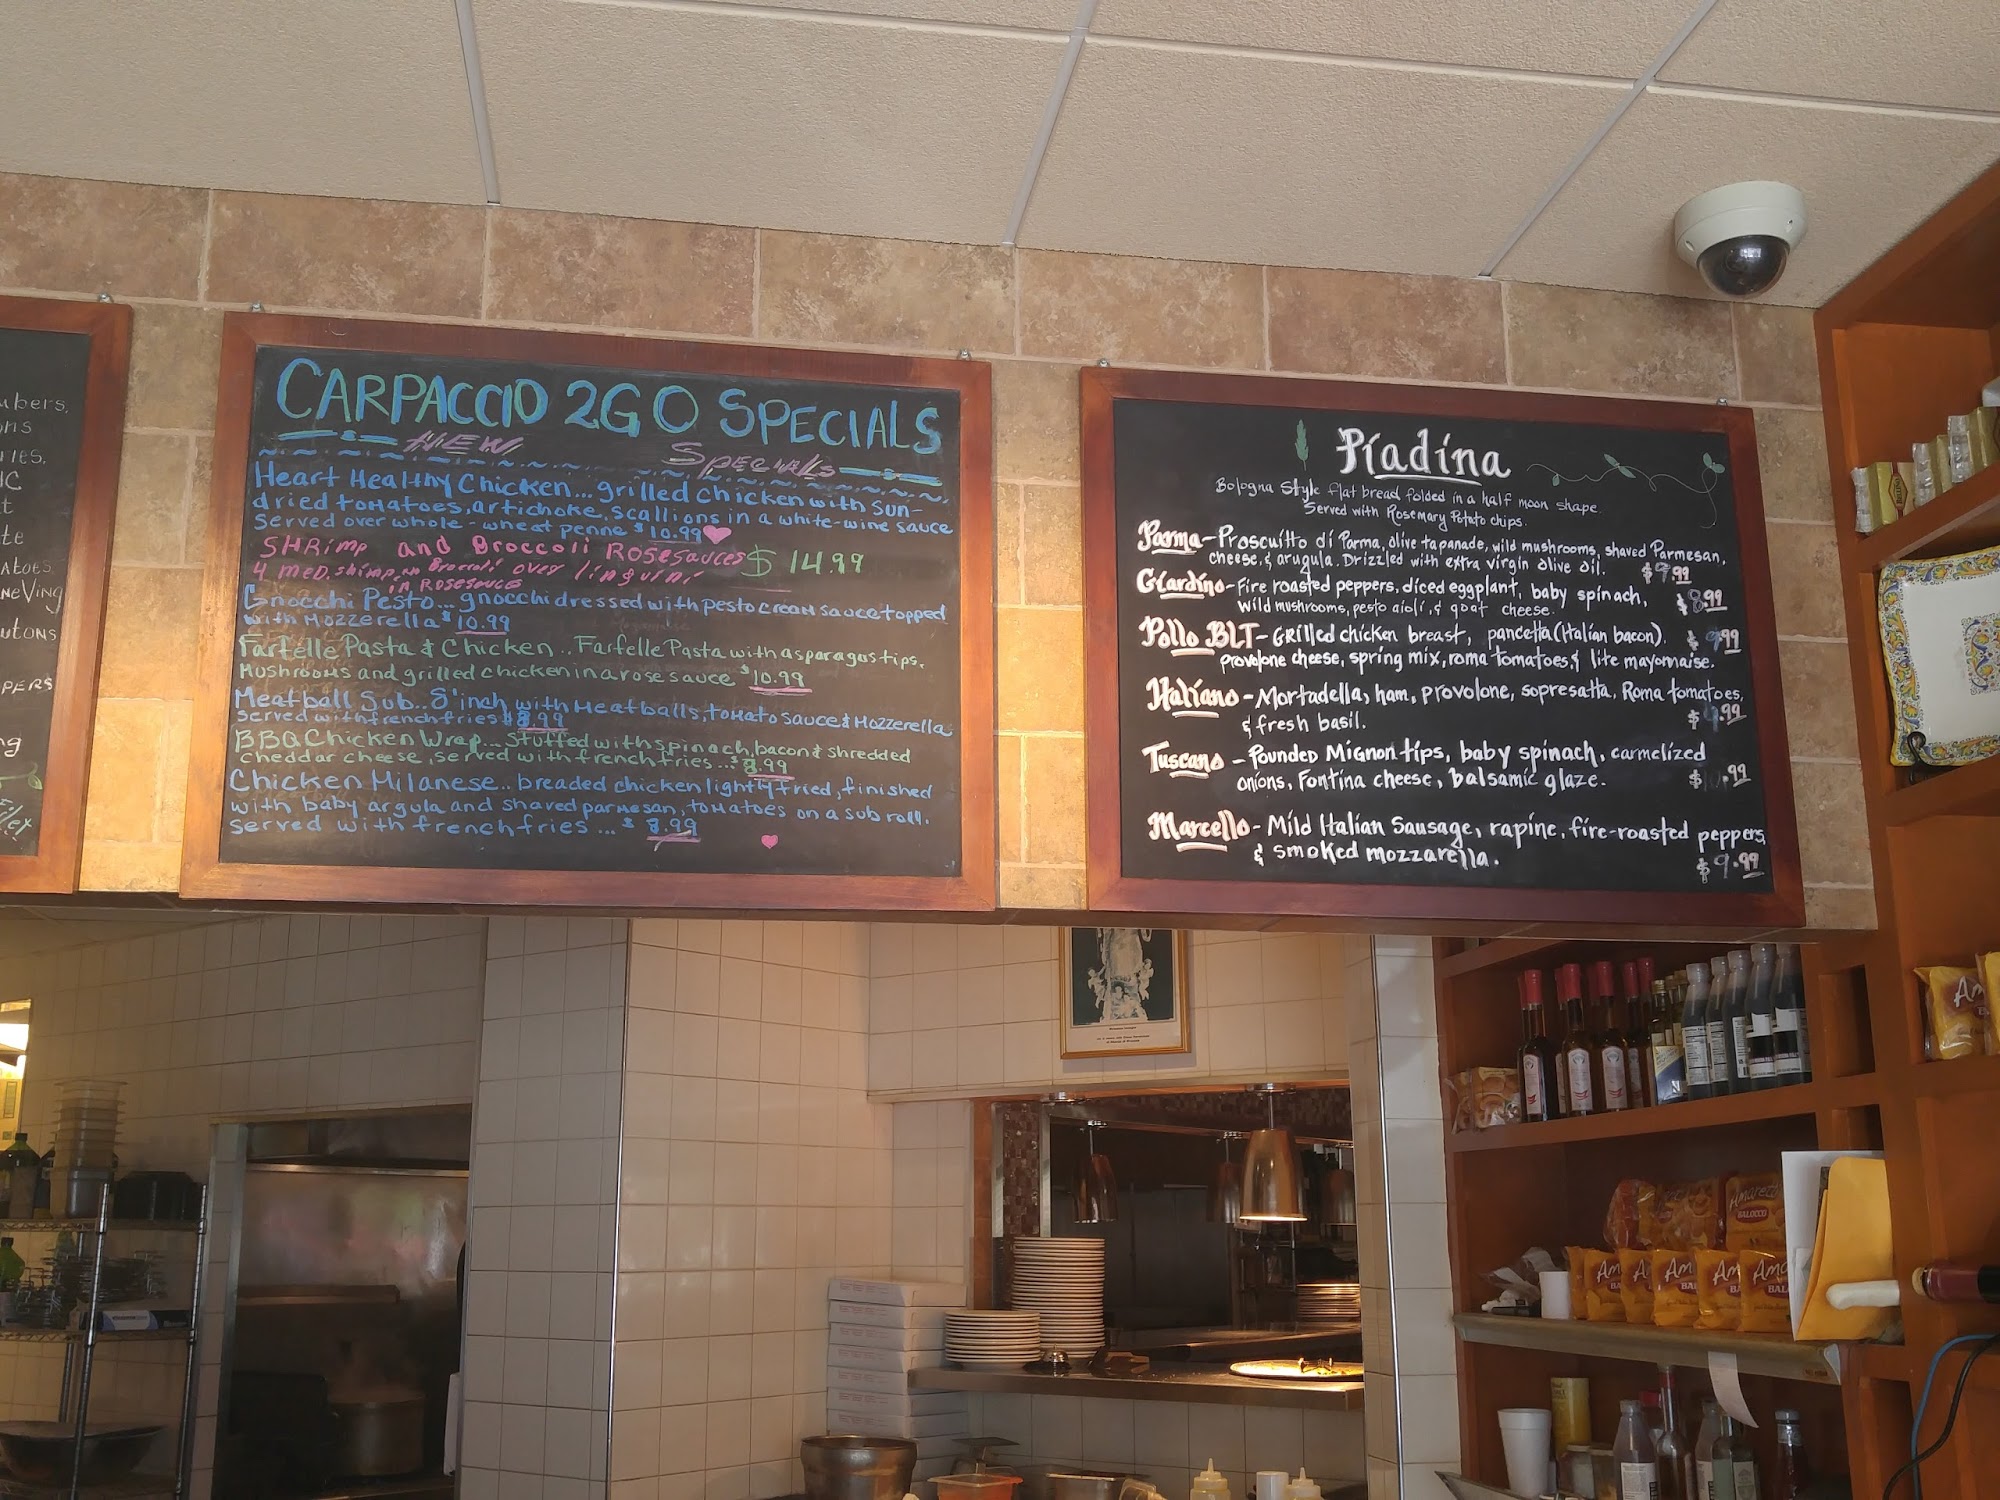 CARPACCIO 2GO SPECIALS
NEW Specials
Heart Healthy Chicken... grilled chicken with sun-
dried tomatoes, artichoke, scallions in a white-wine sauce
served over whole-wheat penne $10.99
SHRimp and Broccoli Rosesauces $14.99
4 med. shimp, Broccoli over linguini
in Rosesauce
Gnocchi Pesto... gnocchi dressed with pesto cream sauce topped
with Mozzerella $10.99
Farfelle Pasta & Chicken.. Farfelle Pasta with asparagus tips,
Mushrooms and grilled chicken in a rose sauce $10.99
Meatball Sub.. 8" inch with Meatballs, tomato sauce & Mozzerella
served with french fries $8.99
BBQ Chicken Wrap... Stuffed with spinach, bacon & shredded
cheddar cheese, served with french fries... $8.99
Chicken Milanese.. breaded chicken lightly fried, finished
with baby argula and shaved parmesan, tomatoes on a sub roll.
served with french fries... $8.99
Piadina
Bologna Style flat bread folded in a half moon shape.
Served with Rosemary Potato chips.
Parma - Proscuitto di Parma, olive tapanade, wild mushrooms, shaved Parmesan,
cheese, & arugula. Drizzled with extra virgin olive oil. $9.99
Giardino - Fire roasted peppers, diced eggplant, baby spinach,
wild mushrooms, pesto aioli, & goat cheese. $8.99
Pollo BLT - Grilled chicken breast, pancetta (Italian bacon). $9.99
provolone cheese, spring mix, roma tomatoes, & lite mayonnaise.
Italiano - Mortadella, ham, provolone, sopresatta, Roma tomatoes,
& fresh basil. $9.99
Tuscano - Pounded Mignon tips, baby spinach, carmelized
onions, Fontina cheese, balsamic glaze. $10.99
Marcello - Mild Italian Sausage, rapine, fire-roasted peppers
& smoked mozzarella. $9.99
Amaretti
BALOCCO